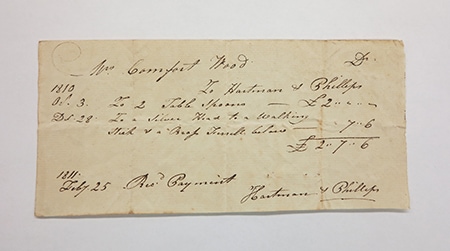 Mrs Comfort Wood Dr.
1810 To Hartman & Phillips
Oc. 3. To 2 Table Spoons — £ 2 " " "
Do 28 To a Silver Head to a Walking
Stick & a Brass — 7 " 6
£ 2 " 7 " 6
1811
Feby 25 Recd Payment
Hartman & Phillips